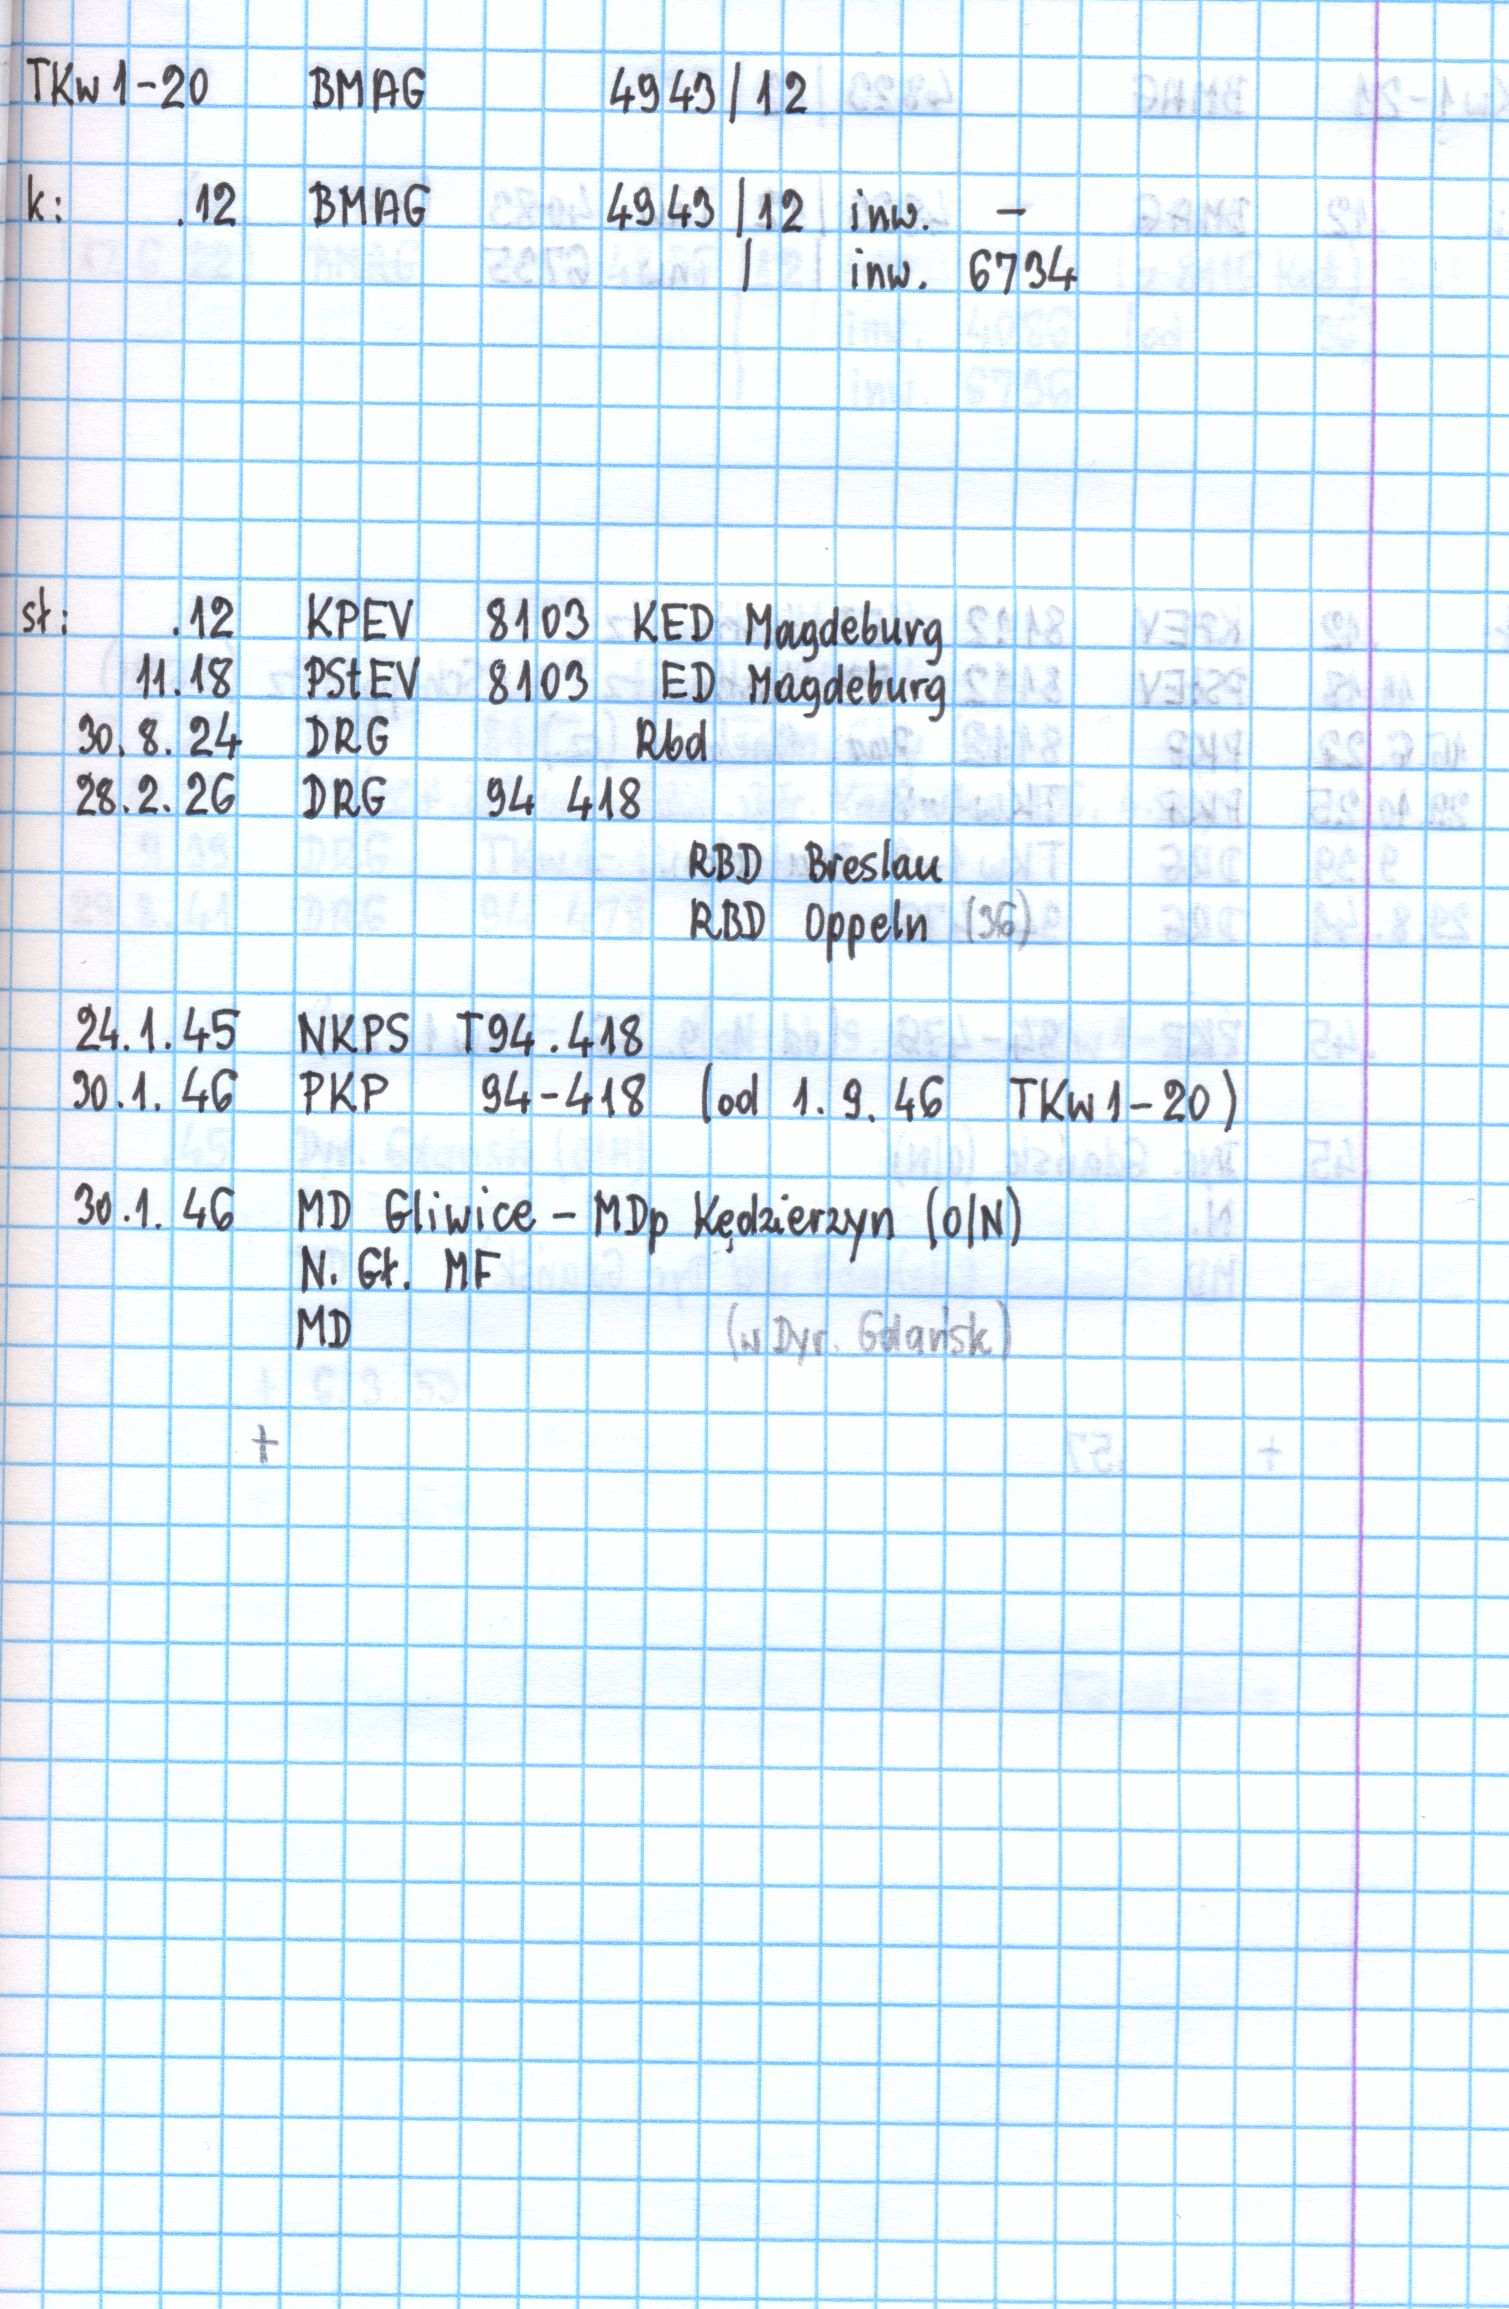 TKw 1-20 BMAG 4943/12
k: .12 BMAG 4943/12 inw. -
/ inw. 6734
st: .12 KPEV 8103 KED Magdeburg
11.18 PStEV 8103 ED Magdeburg
30.8.24 DRG Rbd
28.2.26 DRG 94 418
RBD Breslau
RBD Oppeln (36)
24.1.45 NKPS T94.418
30.1.46 PKP 94-418 (od 1.9.46 TKw 1-20)
30.1.46 MD Gliwice - MDp Kędzierzyn (O/N)
N. Gł. MF
MD (w Dyr. Gdańsk)
+